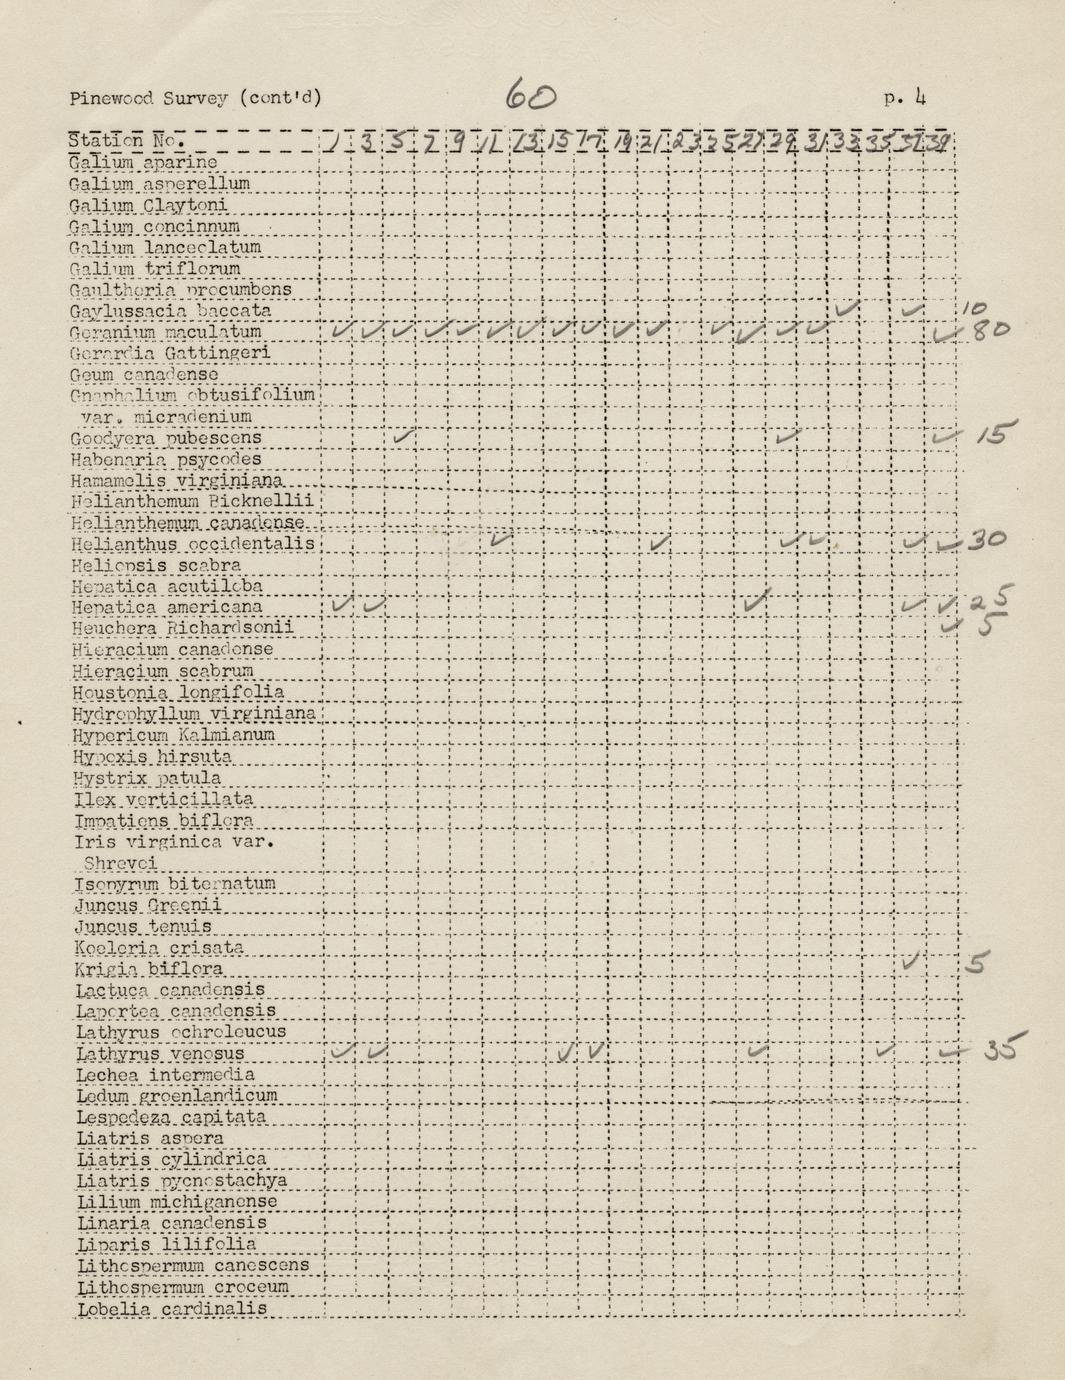 Pinewood Survey (cont'd) 60 p. 4
Station No. 1 3 5 7 9 11 13 15 17 19 21 23 25 27 29 31 33 35 37 39
Galium aparine
Galium asperellum
Galium Claytoni
Galium concinnum
Galium lanceolatum
Galium triflorum
Gaultheria procumbens
Gaylussacia baccata ✓ ✓ 10
Geranium maculatum ✓ ✓ ✓ ✓ ✓ ✓ ✓ ✓ ✓ ✓ ✓ ✓ ✓ ✓ ✓ ✓ 80
Gerardia Gattingeri
Geum canadense
Gnaphalium obtusifolium
var. micradenium
Goodyera pubescens ✓ ✓ ✓ 15
Habenaria psycodes
Hamamelis virginiana
Helianthemum Bicknellii
Helianthemum canadense
Helianthus occidentalis ✓ ✓ ✓ ✓ ✓ ✓ 30
Heliopsis scabra
Hepatica acutiloba
Hepatica americana ✓ ✓ ✓ ✓ ✓ 25
Heuchera Richardsonii ✓ 5
Hieracium canadense
Hieracium scabrum
Houstonia longifolia
Hydrophyllum virginiana
Hypericum Kalmianum
Hypoxis hirsuta
Hystrix patula
Ilex verticillata
Impatiens biflora
Iris virginica var.
Shrevei
Isopyrum biternatum
Juncus Greenii
Juncus tenuis
Koeleria crisata
Krigia biflora ✓ 5
Lactuca canadensis
Laportea canadensis
Lathyrus ochroleucus
Lathyrus venosus ✓ ✓ ✓ ✓ ✓ ✓ ✓ 35
Lechea intermedia
Ledum groenlandicum
Lespedeza capitata
Liatris aspera
Liatris cylindrica
Liatris pycnostachya
Lilium michiganense
Linaria canadensis
Liparis lilifolia
Lithospermum canescens
Lithospermum croceum
Lobelia cardinalis